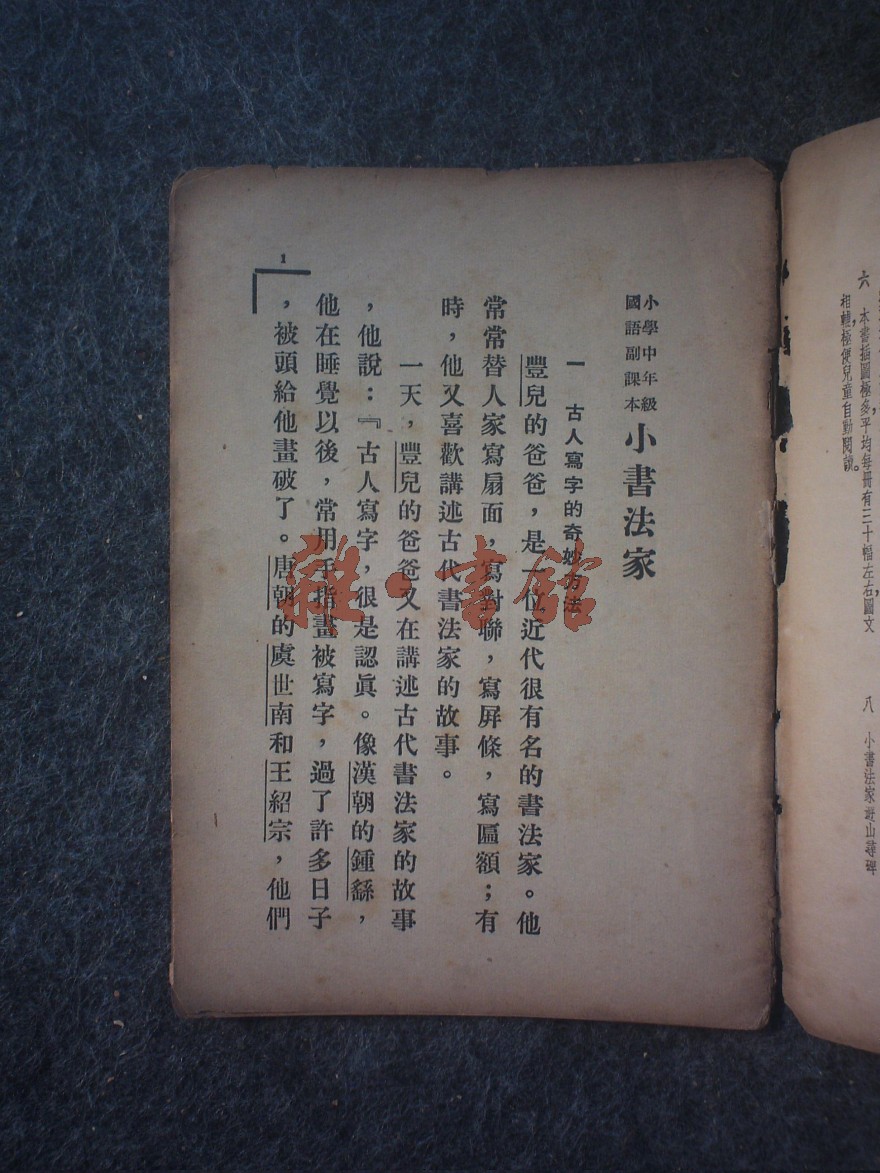 六 本書插圖極多,平均每冊有三十幅左右,圖文
相輔,極便兒童自動閱讀。
八 小書法家遊山尋碑
小學中年級
國語副課本
小書法家
一 古人寫字的奇妙方法
豐兒的爸爸,是一位近代很有名的書法家。他
常常替人家寫扇面,寫對聯,寫屏條,寫匾額;有
時,他又喜歡講述古代書法家的故事。
一天,豐兒的爸爸又在講述古代書法家的故事
,他說:『古人寫字,很是認眞。像漢朝的鍾繇,
他在睡覺以後,常用手指畫被寫字,過了許多日子
,被頭給他畫破了。唐朝的虞世南和王紹宗,他們
1
雜·書館